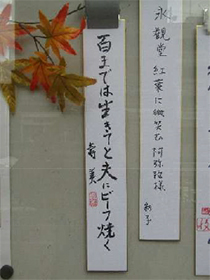 永観堂 紅葉に微笑む阿弥陀様
百までは生きてと夫にビーフ焼く